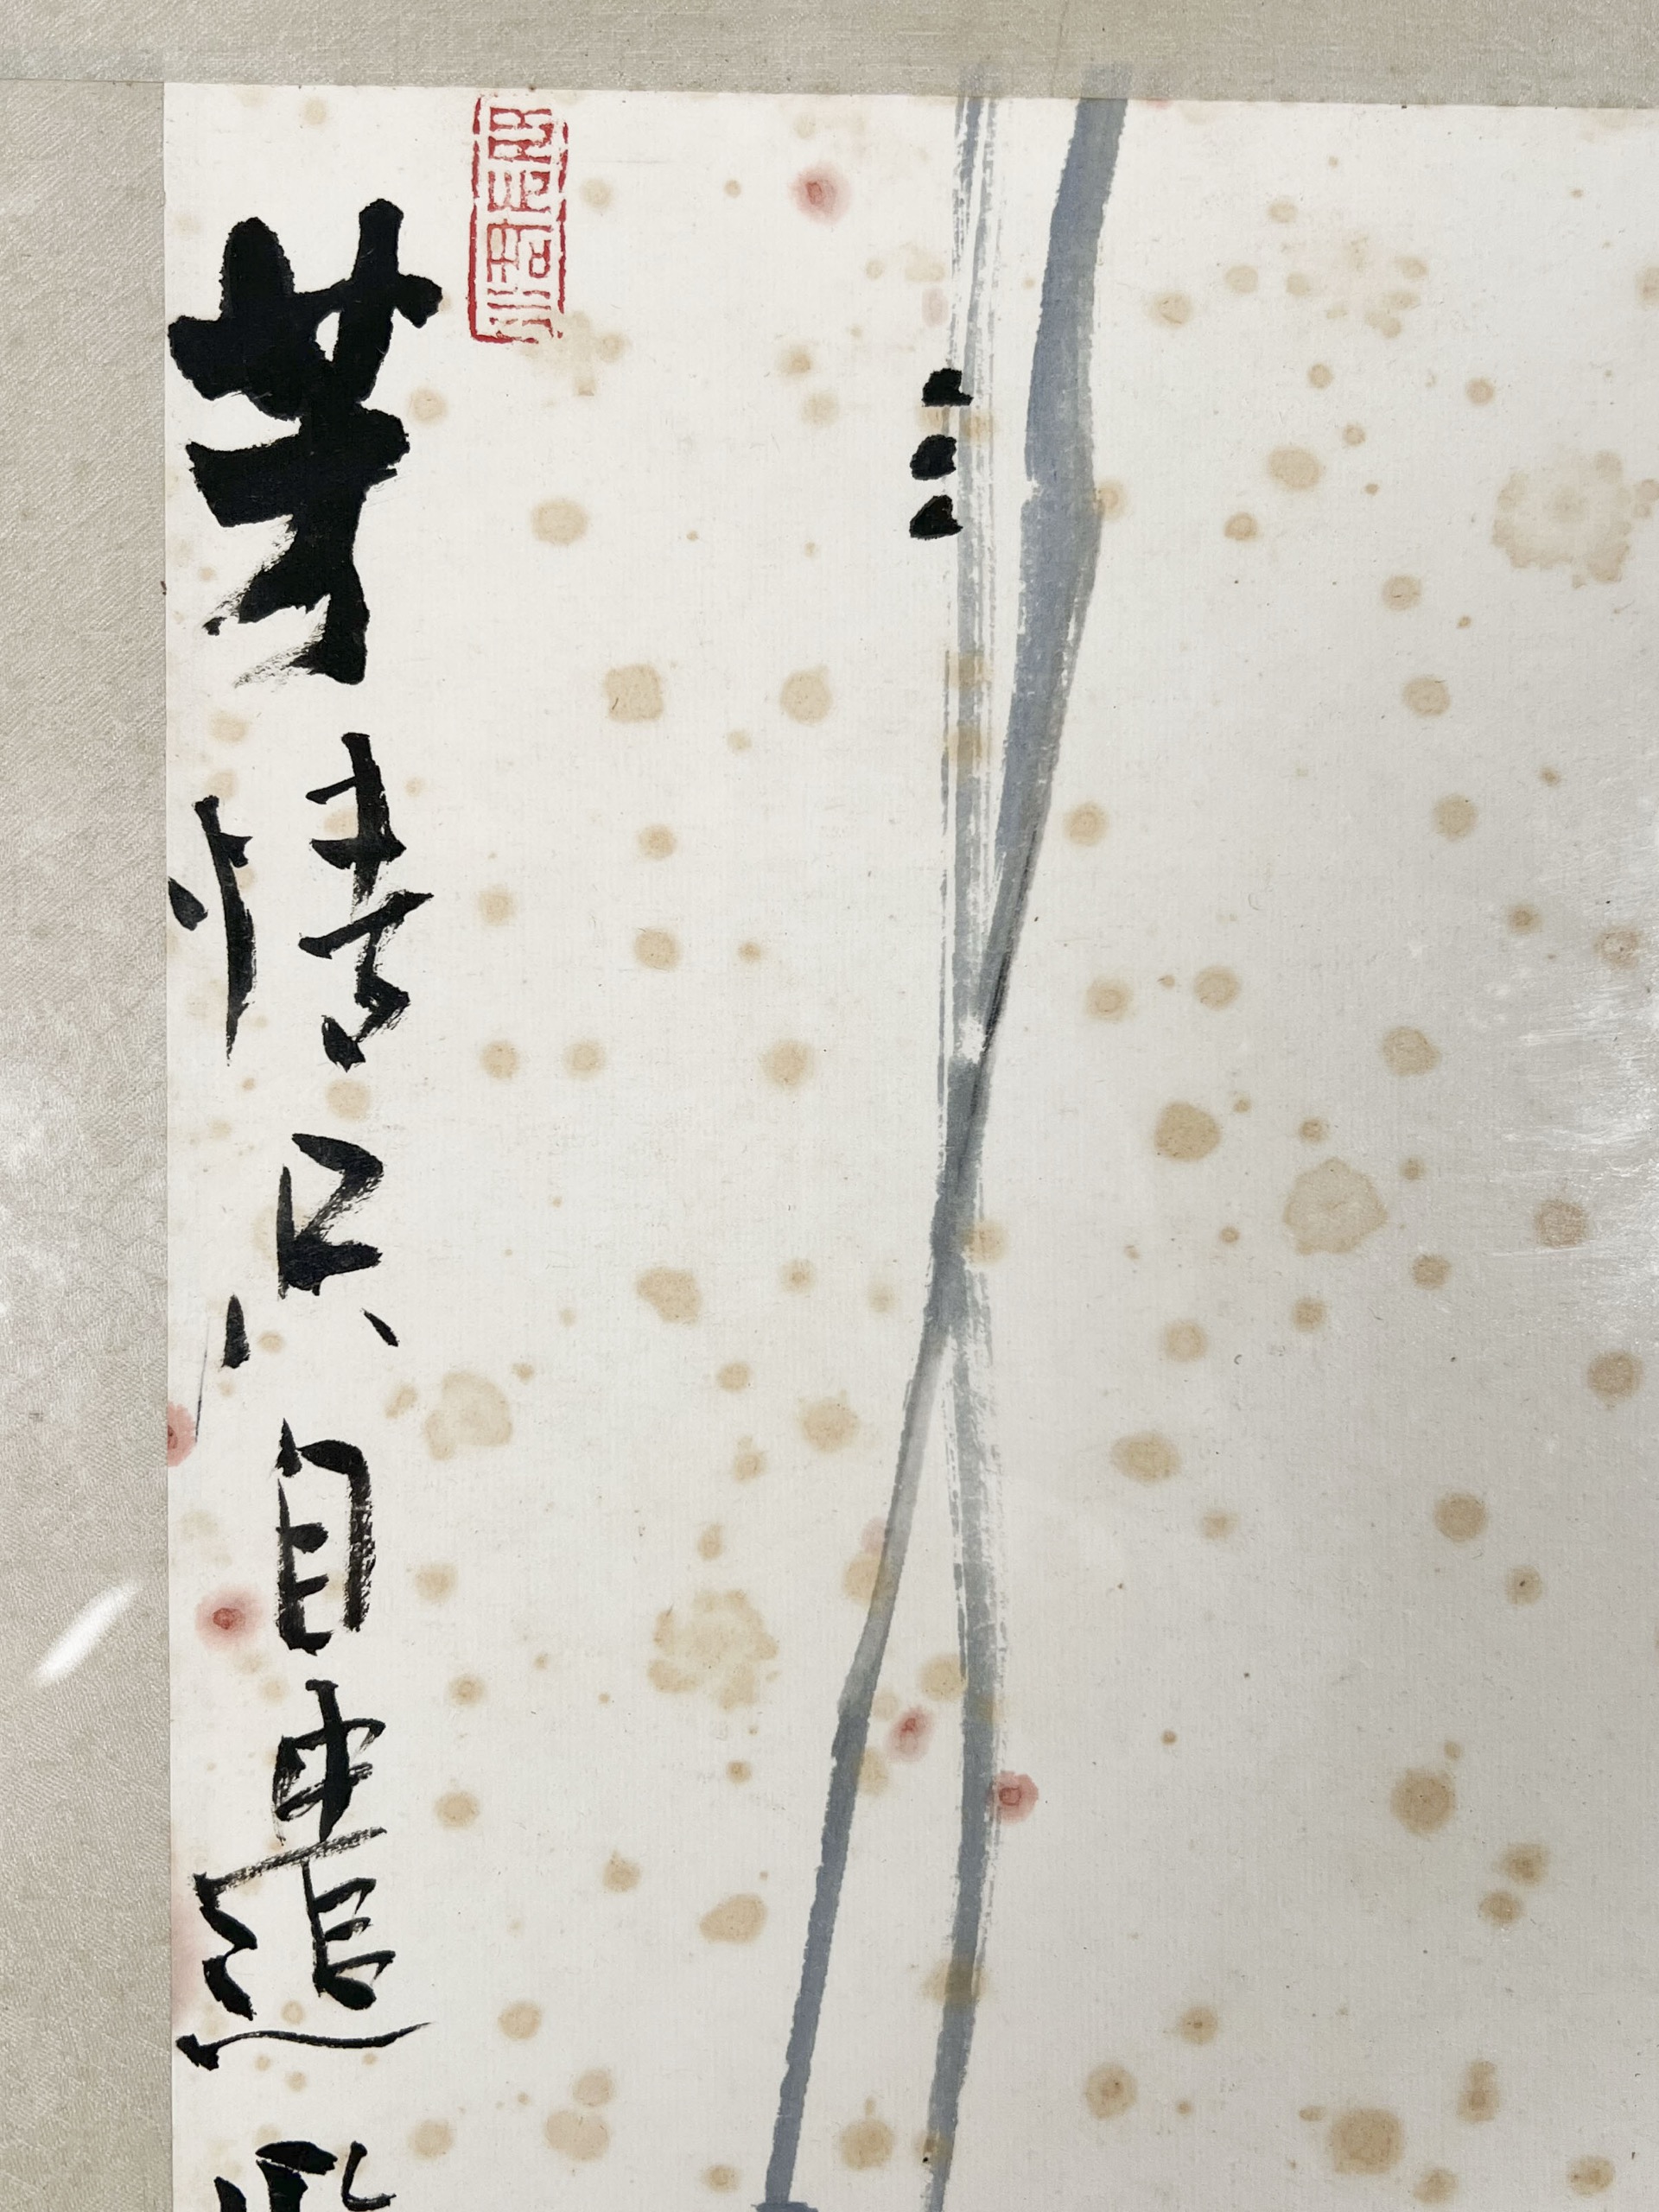 芳情只自遣